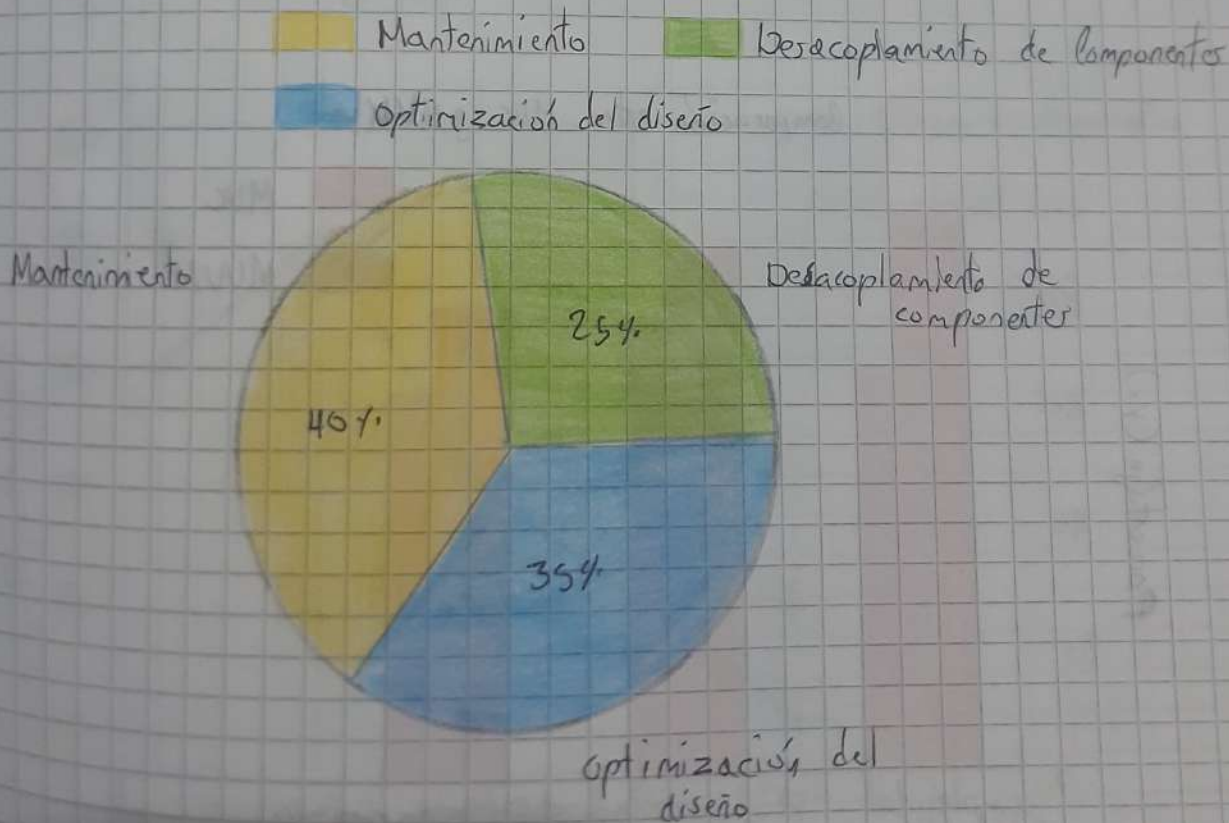 Mantenimiento
Desacoplamiento de Componentes
Optimización del diseño
Mantenimiento
Desacoplamiento de
componentes
25%
40%
35%
Optimización del
diseño